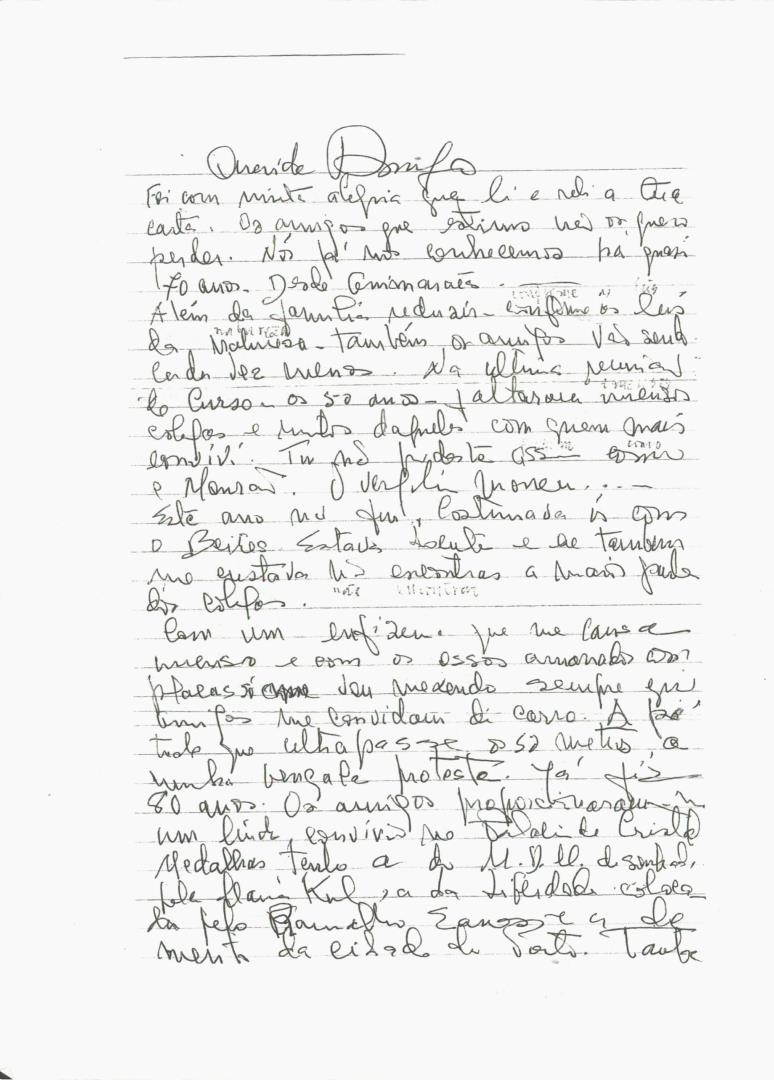 Querido
Foi com muita alegria que li e reli a tua
carta. Os amigos que estimo não os quero
perder. Nós já nos conhecemos há quasi
70 anos. Desde
Além da família reduzir - conforme os leis
da Natureza - também os amigos vão sendo
cada vez menos. Na ultima reunião
do Curso - os 50 anos - faltaram imensos
colegas e muitos daqueles com quem mais
conviví. Tu não pudeste assim como
o Mourão. O morreu....
Este ano no fui. Costumava ir com
o Beites. Estava doente e a mim também
me custava não encontrar a mais parte
dos colegas.
Com um que me cansa
imenso e com os ossos com
placas vou mexendo sempre que
amigos me convidam de carro. A pé
tudo que ultrapasse os 50 metros, a
minha bengala protesta. Já fiz
80 anos. Os amigos proporcionaram-m
um lindo convívio no de Cristal
Medalhas tenho a do M.D.M. desenhada
pela , a da Liberdade coloca-
da pelo Ramalho Eanes e a de
merito da cidade do Porto. Tambe